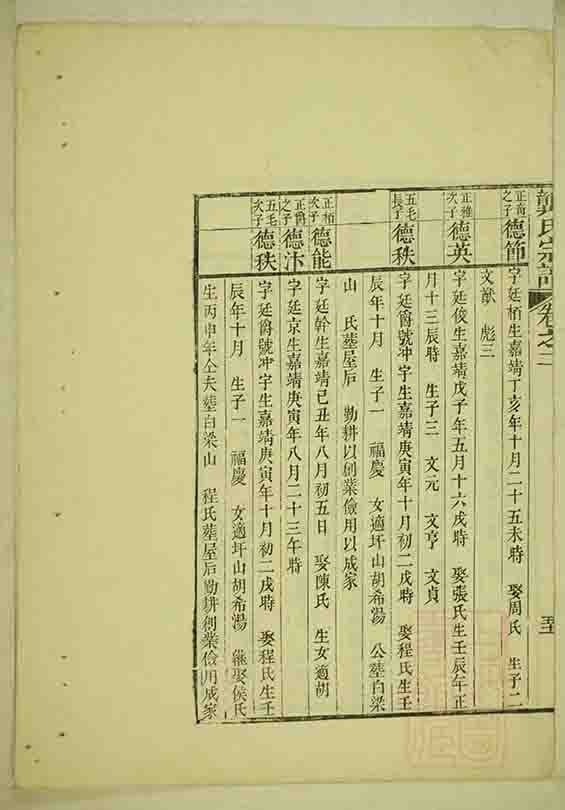 龔氏宗譜 卷之二 五
正
之子 德節 字廷栢生嘉靖丁亥年十月二十五未時 娶周氏 生子二
文猷 彪三
正雅
次子 德英 字廷俊生嘉靖戊子年五月十六戌時 娶張氏生壬辰年正
月十三辰時 生子三 文元 文亨 文貞
五毛
長子 德秩 字廷爵號冲宇生嘉靖庚寅年十月初二戌時 娶程氏生壬
辰年十月 生子一 福慶 女適圩山胡希湯 公塟白梁
山 氏塟屋后 勤耕以創業儉用以成家
正栢
次子 德能 字廷幹生嘉靖己丑年八月初五日 娶陳氏 生女適胡
正爵
之子 德汴 字廷京生嘉靖庚寅年八月二十三午時
五毛
次子 德秩 字廷爵號冲宇生嘉靖庚寅年十月初二戌時 娶程氏生壬
辰年十月 生子一 福慶 女適圩山胡希湯 繼娶侯氏
生丙申年仝夫塟白梁山 程氏塟屋后勤耕創業儉用成家